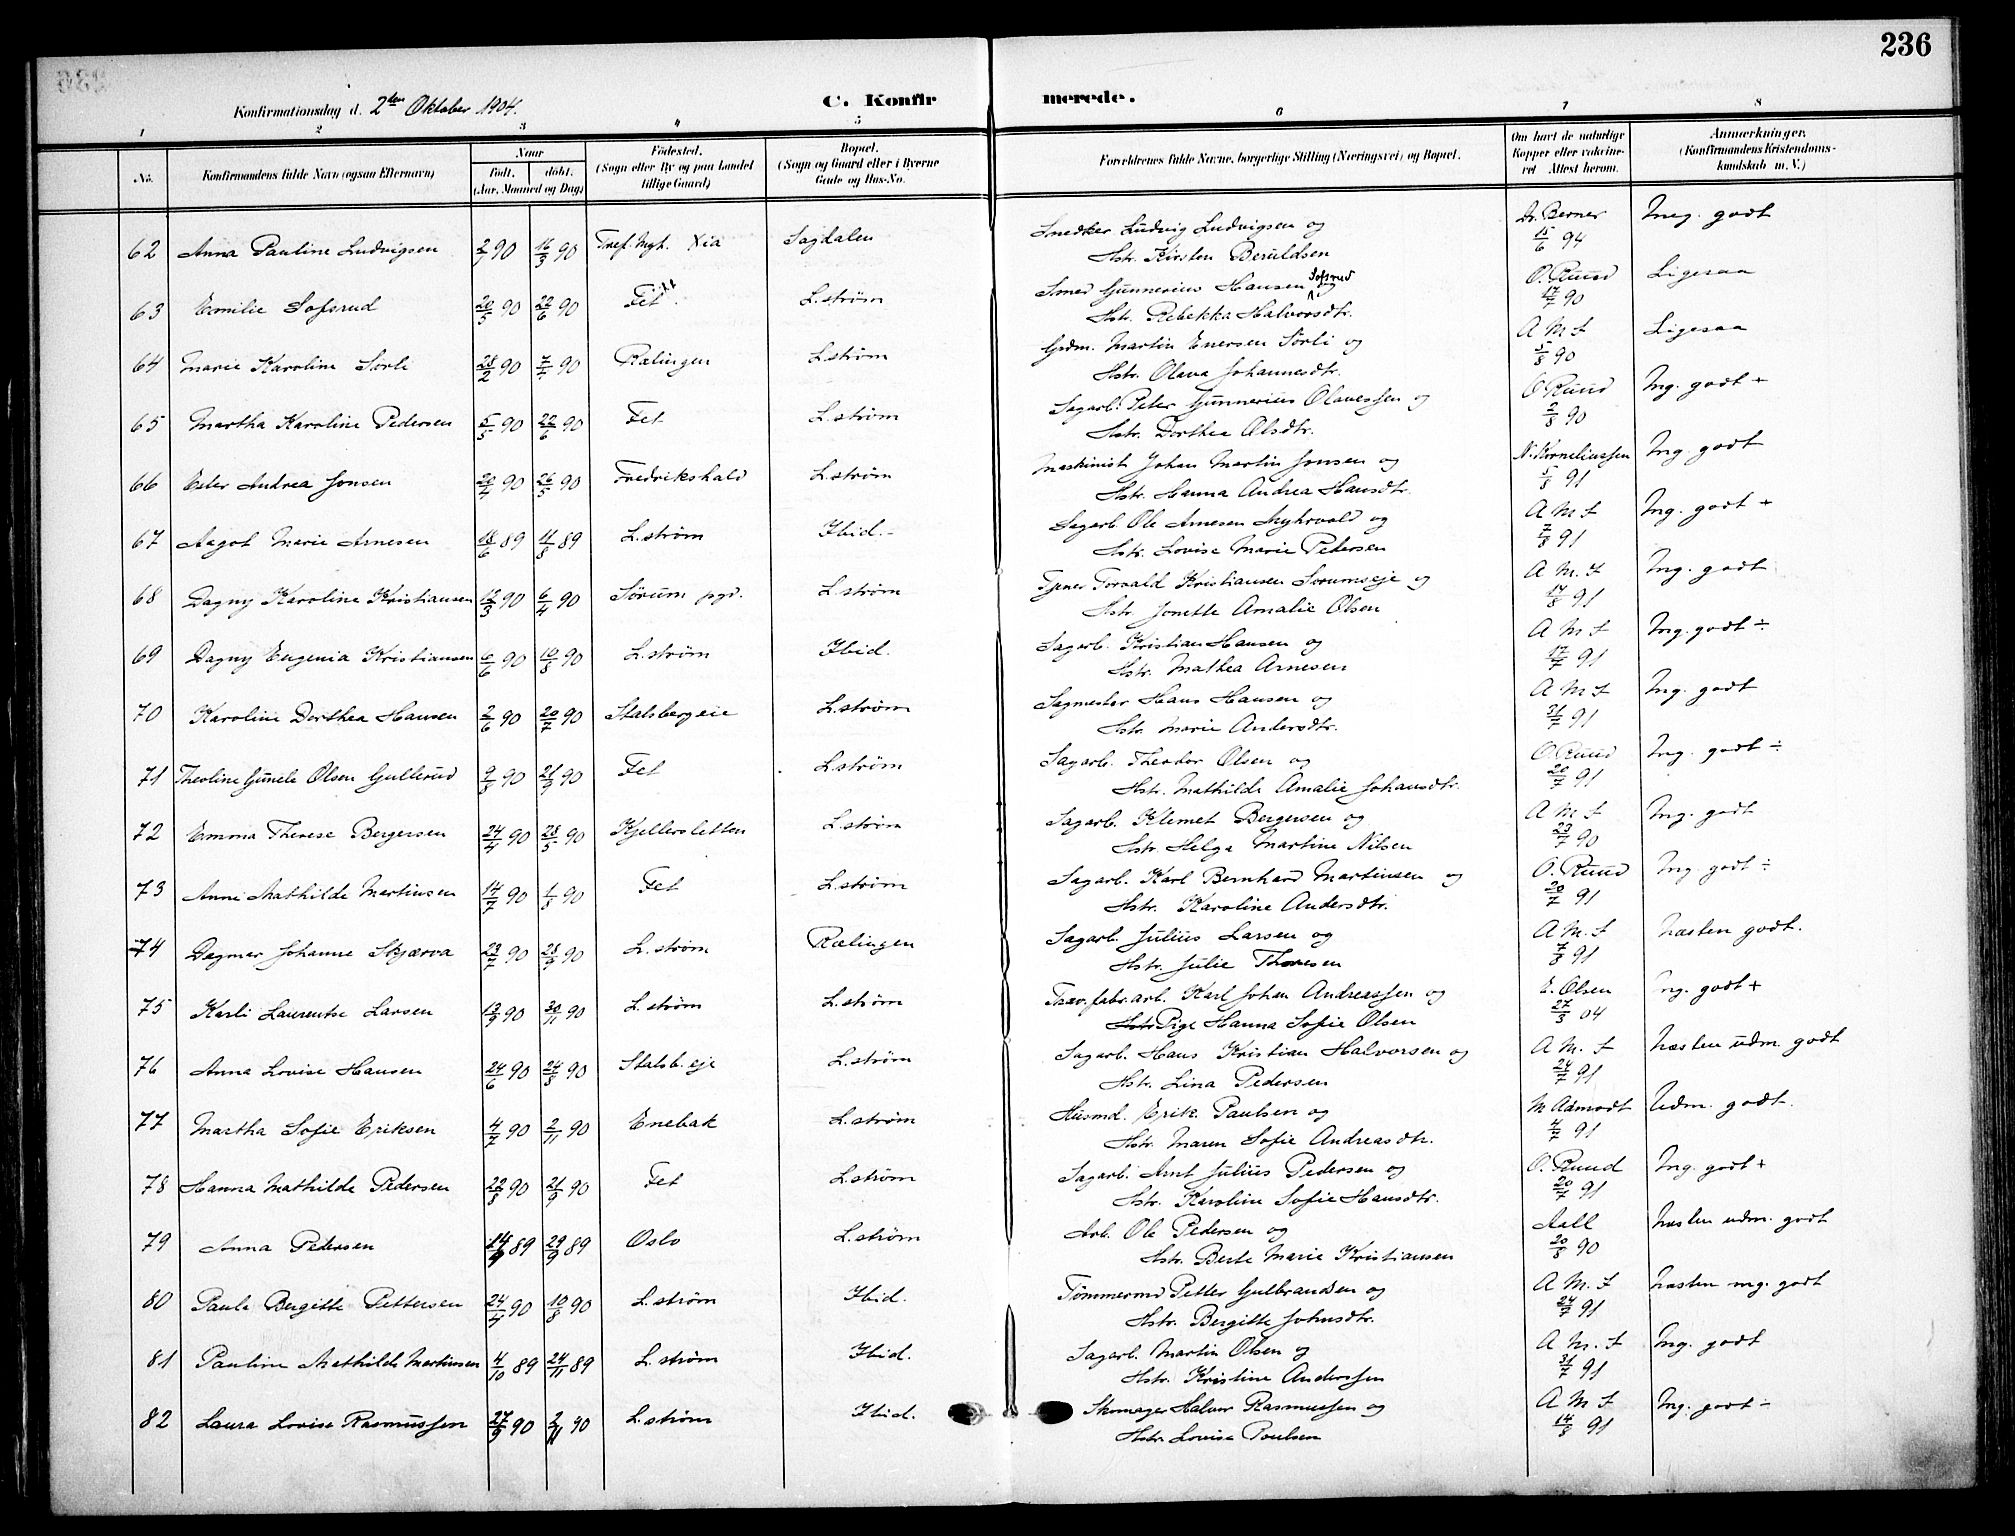 236
Konfirmationsdag d. 2den Oktober 1904.
C. Konfir merede.
1 2 3 4 5 6 7 8
No.
Konfirmandens fulde Navn (ogsaa Efternavn)
Naar
født. døbt.
(Aar, Maaned og Dag)
Fødested.
(Sogn eller By og paa Landet
tillige Gaard)
Bopæl.
(Sogn og Gaard eller i Byerne
Gade og Hus-No.
Forældrenes fulde Navne, borgerlige Stilling (Næringsvei) og Bopæl.
Om havt de naturlige
Kopper eller vakcine-
ret Attest herom.
Anmærkninger.
(Konfirmandens Kristendoms-
kundskab m. V.)
62 Anna Pauline Ludvigsen 2/1 90 16/3 90 Sagdalen Snedker Ludvig Ludvigsen og Dr. Berner Meg. godt
Hstr. Kirsten Beruldsen 15/6 94
63 Emilie Sofsrud 20/5 90 22/6 90 Fet L.strøm Smed Gunnerius Hansen Sofsrud og O. Ruud Ligesaa
Hstr. Rebekka Halvorsdtr. 17/7 90
64 Marie Karoline Sørli 28/2 90 7/4 90 Rælingen L.strøm Grdm. Martin Enersen Sørli og A M F Ligesaa
Hstr. Olava Johannesdtr. 5/8 90
65 Martha Karoline Pedersen 5/5 90 22/6 90 Fet L.strøm Sagarb. Peter Gunnerius Olavessen og O Ruud Mg. godt +
Hstr. Dorthea Olsdtr. 2/8 90
66 Ester Andrea Jonsen 20/4 90 26/5 90 Fredrikshald L.strøm Maskinist Johan Martin Jonsen og N. Korneliussen Mg. godt
Hstr. Hanna Andrea Hansdtr. 5/8 91
67 Aagot Marie Arnesen 18/6 89 11/8 89 L.strøm Ibid. Sagarb. Ole Arnesen Myhrvold og A M F Mg. godt +
Hstr. Lovise Marie Pedersen 7/8 91
68 Dagny Karoline Kristiansen 12/3 90 6/4 90 Sørum pgd. L.strøm Tjener Torvald Kristiansen Sørumseje og A M. F Mg. godt
Hstr. Jonette Amalie Olsen 14/8 91
69 Dagny Eugenia Kristiansen 6/6 90 10/8 90 L.strøm Ibid. Sagarb. Kristian Hansen og A M F Mg. godt ÷
Hstr. Mathea Arnesen 17/7 91
70 Karoline Dorthea Hansen 2/6 90 20/7 90 Stalsbergeie L.strøm Sagmester Hans Hansen og A M F Mg. godt
Hstr. Marie Andersdtr. 31/7 91
71 Theoline Gunele Olsen Gullerud 9/8 90 21/9 90 Fet L.strøm Sagarb. Theodor Olsen og O. Ruud Mg. godt ÷
Hstr. Mathilde Amalie Johansdtr. 20/7 91
72 Emma Therese Bergersen 24/4 90 28/5 90 Kjellersletten L.strøm Sagarb. Klemet Bergersen og A M F Mg. godt
Hstr. Helga Martine Nilsen 23/7 90
73 Anne Mathilde Martinsen 14/7 90 1/8 90 Fet L.strøm Sagarb. Karl Bernhard Martinsen og O. Ruud Mg. godt ÷
Hstr. Karoline Andersdtr. 20/7 91
74 Dagmar Johanne Skjærva 23/7 90 28/9 90 L.strøm Rælingen Sagarb. Julius Larsen og A M. F Næsten godt.
Hstr. Julie Thoresen 7/8 91
75 Karli Laurentse Larsen 13/9 90 30/11 90 L.strøm L.strøm Træv.fabr.arb. Karl Johan Andreassen og E. Olsen mg. godt +
Hstr. Pige Hanna Sofie Olsen 27/3 04
76 Anna Lovise Hansen 24/6 90 24/8 90 Stalsb.eje L.strøm Sagarb. Hans Kristian Halvorsen og A M. F Næsten udm. godt
Hstr. Lina Pedersen 24/7 91
77 Martha Sofie Eriksen 4/7 90 2/11 90 Enebak L.strøm Husmd. Erik Paulsen og M Aamodt Udm. godt.
Hstr. Maren Sofie Andreasdtr. 4/7 91
78 Hanna Mathilde Pedersen 22/8 90 21/9 90 Fet L.strøm Sagarb. Arnt Julius Pedersen og O. Ruud Mg. godt +
Hstr. Karoline Sofie Hansdtr. 20/7 91
79 Anna Pedersen 14/9 89 29/9 89 Oslo L.strøm Arb. Ole Pedersen og Aall Næsten udm. godt
Hstr. Berte Marie Kristiansen 20/8 90
80 Paula Bergitte Pettersen 24/4 90 10/8 90 L.strøm Ibid. Tømmermd Petter Gulbrandsen og A M. F Næsten mg. godt
Hstr. Bergitte Johnsdtr. 24/7 91
81 Pauline Mathilde Martinsen 4/10 89 24/11 89 L.strøm Ibid. Sagarb. Martin Olsen og A M. F Mg. godt
Hstr. Kristine Anderssen 31/7 91
82 Laura Lovise Rasmussen 27/9 90 2/11 90 L.strøm Ibid. Skomager Halvor Rasmussen og A M F Mg. godt ÷
Hstr. Lovise Poulsen 14/8 91